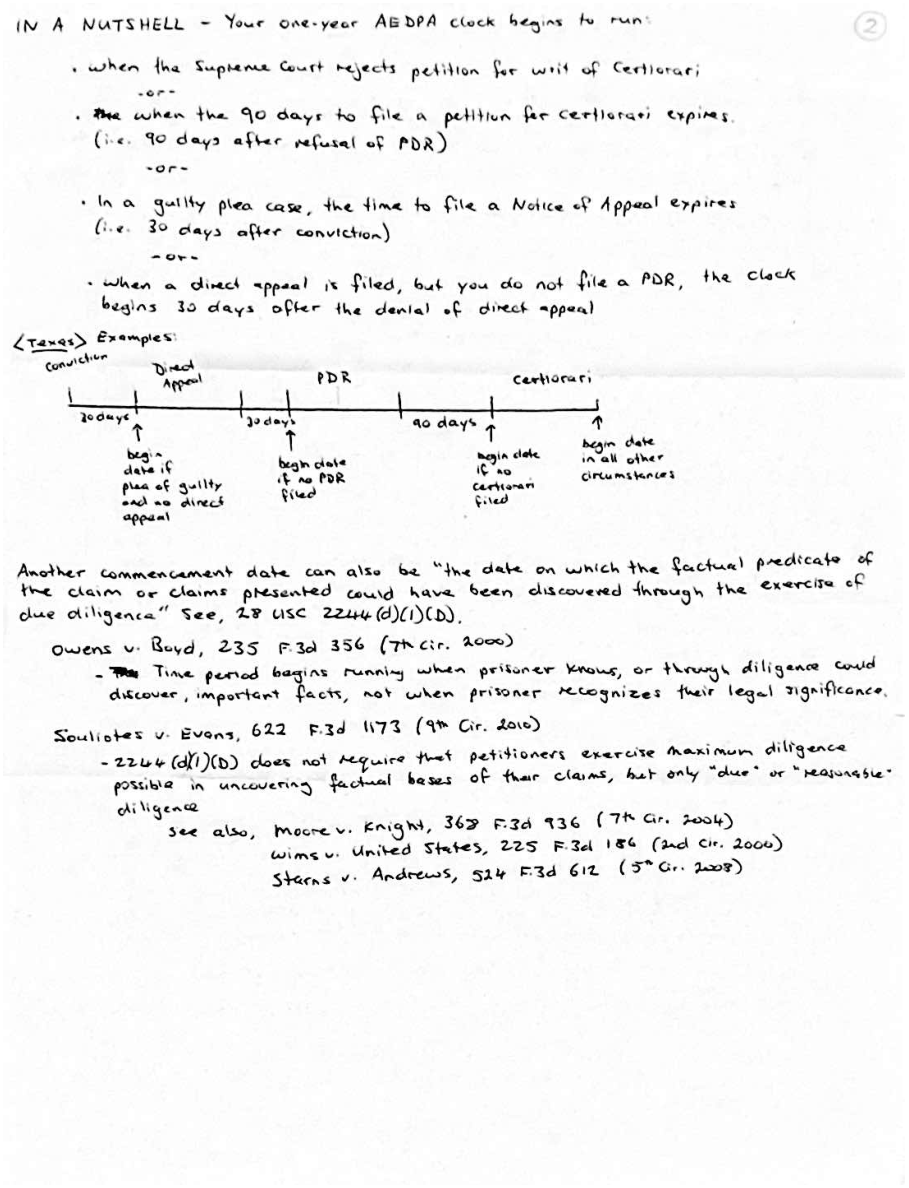 IN A NUTSHELL - Your one-year AEDPA clock begins to run:
2
• when the Supreme Court rejects petition for writ of Certiorari;
-or-
• when the 90 days to file a petition for certiorari expires.
(i.e. 90 days after refusal of PDR)
-or-
• In a guilty plea case, the time to file a Notice of Appeal expires
(i.e. 30 days after conviction)
-or-
• when a direct appeal is filed, but you do not file a PDR, the clock
begins 30 days after the denial of direct appeal
<Texas> Examples:
Conviction
Direct
Appeal
PDR
Certiorari
30 days
30 days
90 days
begin
date if
plea of guilty
and no direct
appeal
begin date
if no PDR
filed
begin date
if no
certiorari
filed
begin date
in all other
circumstances
Another commencement date can also be "the date on which the factual predicate of
the claim or claims presented could have been discovered through the exercise of
due diligence" See, 28 USC 2244(d)(1)(D).
Owens v. Boyd, 235 F.3d 356 (7th Cir. 2000)
- Time period begins running when prisoner knows, or through diligence could
discover, important facts, not when prisoner recognizes their legal significance.
Souliotes v. Evans, 622 F.3d 1173 (9th Cir. 2010)
- 2244(d)(1)(D) does not require that petitioners exercise maximum diligence
possible in uncovering factual bases of their claims, but only "due" or "reasonable"
diligence
see also, Moore v. Knight, 368 F.3d 936 (7th Cir. 2004)
Wims v. United States, 225 F.3d 186 (2nd Cir. 2000)
Starns v. Andrews, 524 F.3d 612 (5th Cir. 2008)